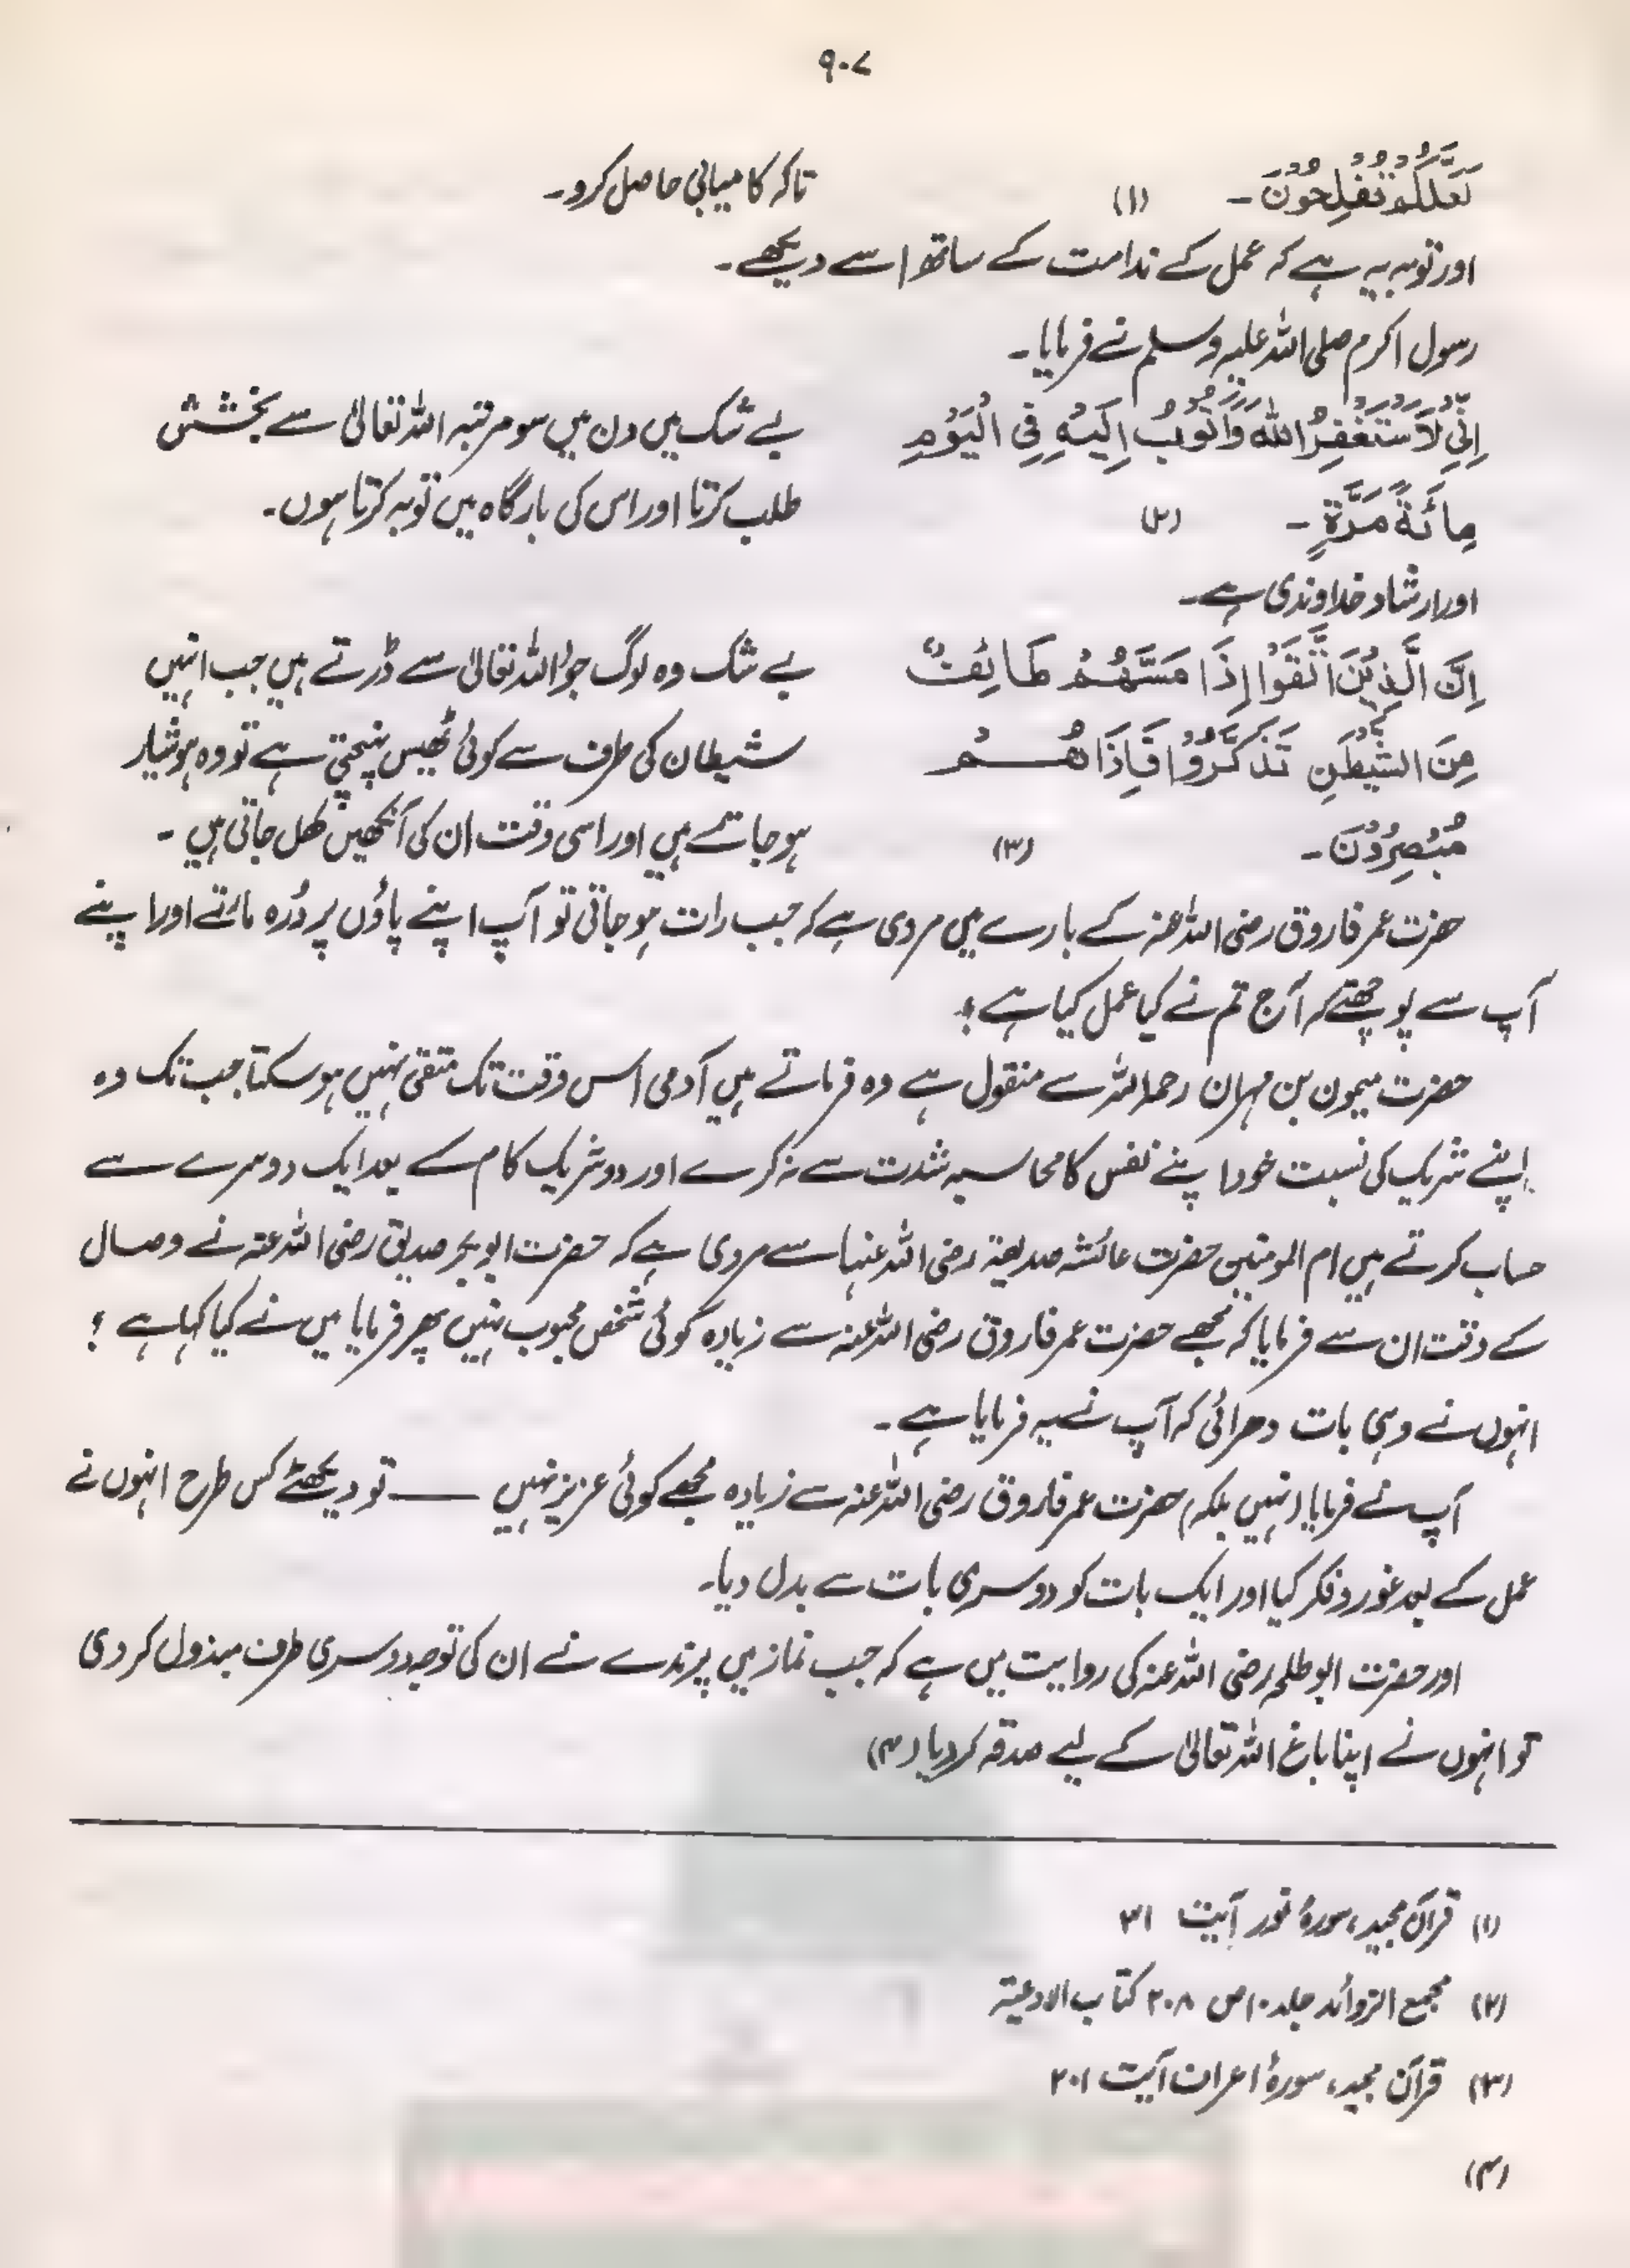 ۹۰۷
لَعَلَّكُمْ تُفْلِحُوْنَ۔ (۱) تاکہ کامیابی حاصل کرو۔
اور توبہ یہ ہے کہ عمل کے ندامت کے ساتھ اسے دیکھے۔
رسول اکرم صلی اللہ علیہ وسلم نے فرمایا۔
اِنِّیْ لَاَسْتَغْفِرُ اللّٰهَ وَاَتُوْبُ اِلَیْهِ فِی الْیَوْمِ بے شک میں دن میں سو مرتبہ اللہ تعالیٰ سے بخشش
مِائَةَ مَرَّةٍ۔ (۲) طلب کرتا اور اس کی بارگاہ میں توبہ کرتا ہوں۔
اور ارشاد خداوندی ہے۔
اِنَّ الَّذِیْنَ اتَّقَوْا اِذَا مَسَّهُمْ طَائِفٌ بے شک وہ لوگ جو اللہ تعالیٰ سے ڈرتے ہیں جب انہیں
مِنَ الشَّیْطٰنِ تَذَكَّرُوْا فَاِذَا هُمْ شیطان کی طرف سے کوئی ٹھیس پہنچتی ہے تو وہ ہوشیار
مُبْصِرُوْنَ۔ (۳) ہو جاتے ہیں اور اسی وقت ان کی آنکھیں کھل جاتی ہیں۔
حضرت عمر فاروق رضی اللہ عنہ کے بارے میں مروی ہے کہ جب رات ہو جاتی تو آپ اپنے پاؤں پر دُرّہ مارتے اور اپنے
آپ سے پوچھتے کہ آج تم نے کیا عمل کیا ہے؟
حضرت میمون بن مہران رحمہ اللہ سے منقول ہے وہ فرماتے ہیں آدمی اس وقت تک متقی نہیں ہو سکتا جب تک وہ
اپنے شریک کی نسبت خود اپنے نفس کا محاسبہ شدت سے نہ کرے اور دو شریک کام کے بعد ایک دوسرے سے
حساب کرتے ہیں ام المومنین حضرت عائشہ صدیقہ رضی اللہ عنہا سے مروی ہے کہ حضرت ابوبکر صدیق رضی اللہ عنہ نے وصال
کے وقت ان سے فرمایا کہ مجھے حضرت عمر فاروق رضی اللہ عنہ سے زیادہ کوئی شخص محبوب نہیں پھر فرمایا میں نے کیا کہا ہے؟
انہوں نے وہی بات دھرائی کہ آپ نے یہ فرمایا ہے۔
آپ نے فرمایا (نہیں بلکہ) حضرت عمر فاروق رضی اللہ عنہ سے زیادہ مجھے کوئی عزیز نہیں —— تو دیکھئے کس طرح انہوں نے
عمل کے بعد غور و فکر کیا اور ایک بات کو دوسری بات سے بدل دیا۔
اور حضرت ابو طلحہ رضی اللہ عنہ کی روایت میں ہے کہ جب نماز میں پرندے نے ان کی توجہ دوسری طرف مبذول کر دی
تو انہوں نے اپنا باغ اللہ تعالیٰ کے لیے صدقہ کر دیا (۴)
(۱) قرآن مجید، سورۂ نور آیت ۳۱
(۲) مجمع الزوائد جلد ۱۰ ص ۲۰۸ کتاب الادعیۃ
(۳) قرآن مجید، سورۂ اعراف آیت ۲۰۱
(۴)